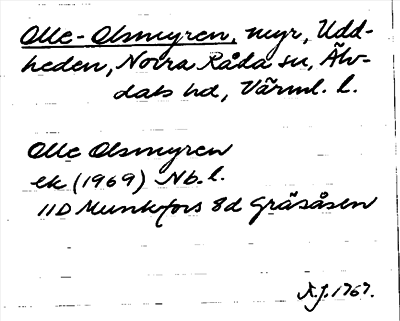 Olle-Olsmyren, myr, Udd-
heden, Norra Råda sn, Älv-
dals hd, Värml. l.
Olle Olsmyren
ek (1969) Nb. l.
11D Munkfors 8d Gräsåsen
A.J. 1767.